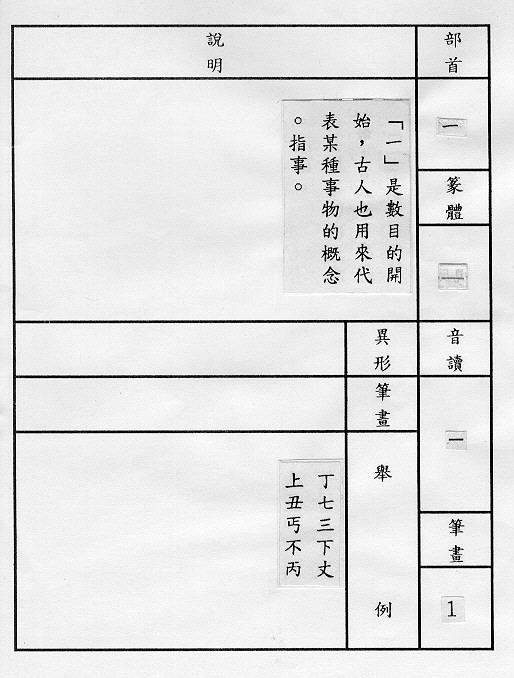 部首
一
篆體
一
音讀
一
筆畫
1
說明
「一」是數目的開
始，古人也用來代
表某種事物的概念
。指事。
異形
筆畫
舉例
丁七三下丈
上丑丐不丙